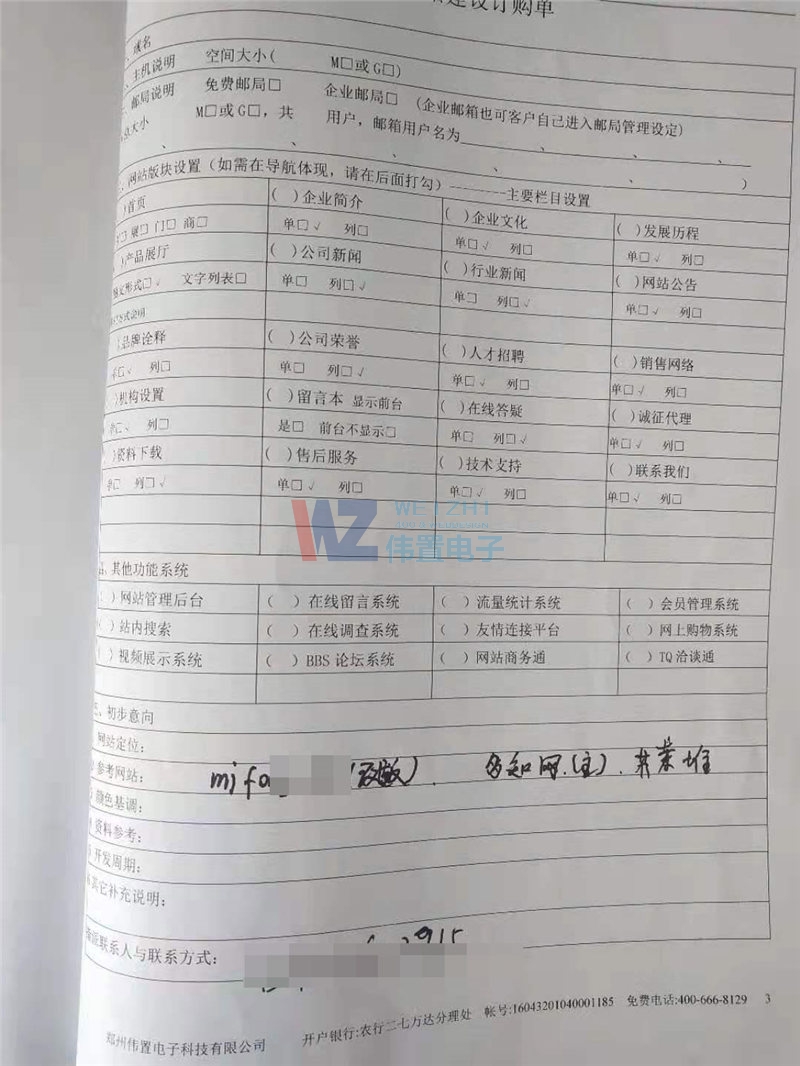 建设订购单
域名
主机说明 空间大小( M□或G□)
邮局说明 免费邮局□ 企业邮局□ (企业邮箱也可客户自己进入邮局管理设定)
大小 M□或G□，共 用户，邮箱用户名为________、 、 、
、 、 、 、 、 )
、网站版块设置（如需在导航体现，请在后面打勾）--------主要栏目设置
)首页 ( )企业简介 ( )企业文化 ( )发展历程
展□ 门□ 商□ 单□√ 列□ 单□√ 列□ 单□√ 列□
)产品展厅 ( )公司新闻 ( )行业新闻 ( )网站公告
图文形式□√ 文字列表□ 单□ 列□√ 单□ 列□√ 单□√ 列□
)品牌诠释 ( )公司荣誉 ( )人才招聘 ( )销售网络
单□√ 列□ 单□ 列□√ 单□√ 列□ 单□√ 列□
)机构设置 ( )留言本 显示前台 ( )在线答疑 ( )诚征代理
单□√ 列□ 是□ 前台不显示□ 单□ 列□√ 单□√ 列□
)资料下载 ( )售后服务 ( )技术支持 ( )联系我们
单□ 列□√ 单□√ 列□ 单□√ 列□ 单□√ 列□
WZ WEIZHI
伟置电子
、其他功能系统
( )网站管理后台 ( )在线留言系统 ( )流量统计系统 ( )会员管理系统
( )站内搜索 ( )在线调查系统 ( )友情连接平台 ( )网上购物系统
( )视频展示系统 ( )BBS论坛系统 ( )网站商务通 ( )TQ洽谈通
三、初步意向
网站定位：
参考网站： mifa 知网.(主)
颜色基调：
资料参考：
开发周期：
其它补充说明：
联系人与联系方式： 2915
郑州伟置电子科技有限公司 开户银行:农行二七万达分理处 帐号:16043201040001185 免费电话:400-666-8129 3